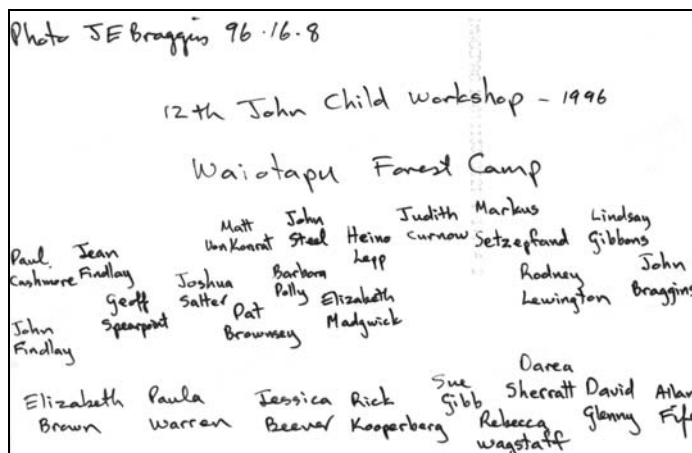 Photo JE Braggins 96.16.8
12th John Child Workshop - 1996
Waiotapu Forest Camp
Paul Cashmore
Jean Findlay
Matt von Konrat
John Steel
Heino Lepp
Judith Curnow
Markus Setzepfand
Lindsay Gibbons
John Findlay
Geoff Spearpoint
Joshua Salter
Pat Brownsey
Barbara Polly
Elizabeth Madgwick
Rodney Lewington
John Braggins
Elizabeth Brown
Paula Warren
Jessica Beever
Rick Kooperberg
Sue Gibb
Rebecca Wagstaff
Darea Sherratt
David Glenny
Allan